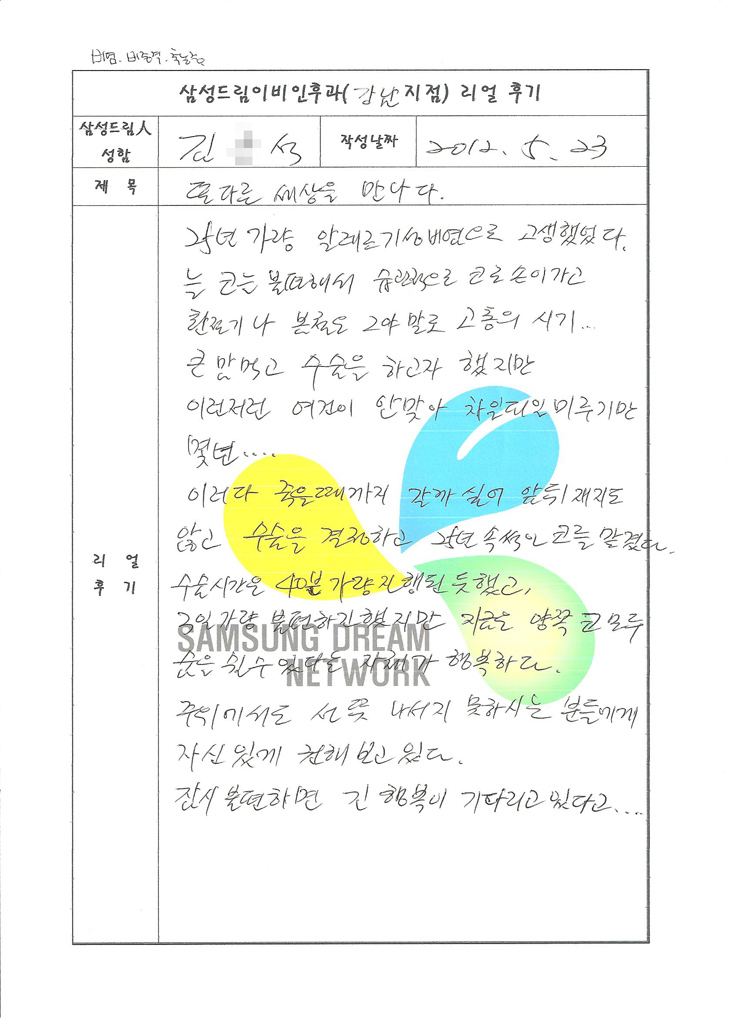 비염. 비중격. 축농증
삼성드림이비인후과(강남지점) 리얼 후기
삼성드림人
성함
김 석
작성날짜
2012. 5. 23
제 목
또다른 세상을 만나다.
리 얼
후 기
25년 가량 알레르기성비염으로 고생했었다.
늘 코는 불편해서 습관적으로 코로 손이가고
환절기나 본철도 그야말로 고통의 시기...
큰 맘먹고 수술을 하고자 했지만
이런저런 여건이 안맞아 차일피일 미루기만
몇년....
이러다 죽을때까지 갈까 싶어 앞뒤 재지도
않고 수술을 결정하고 25년 속썩인 코를 맡겼다.
수술시간은 40분 가량 진행된 듯했고,
2일 가량 불편하긴했지만 지금은 양쪽 코 모두
숨을 쉴수 있다는 자체가 행복하다.
주위에서도 선뜻 나서지 못하시는 분들에게
자신있게 권해보고 있다.
잠시 불편하면 긴 행복이 기다리고 있다고....
SAMSUNG DREAM
NETWORK